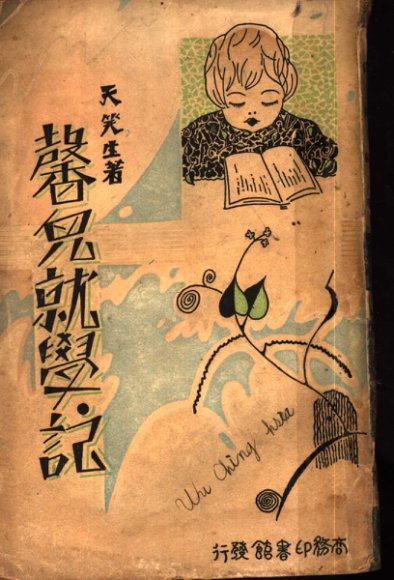 天笑生著
馨兒就學記
Ching
商務印書館發行